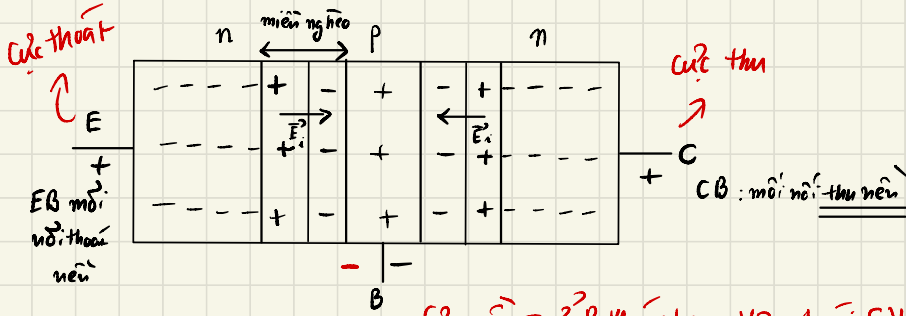 cực thoát
n
miền nghèo
P
n
cực thu
- - - - + - + - + - - - -
E
E⃗i
E⃗i
- - - - + - + - + - - - -
C
+
+
EB mối
nối thoát
nền
CB : mối nối thu nền
- - - - + - + - + - - - -
- -
B